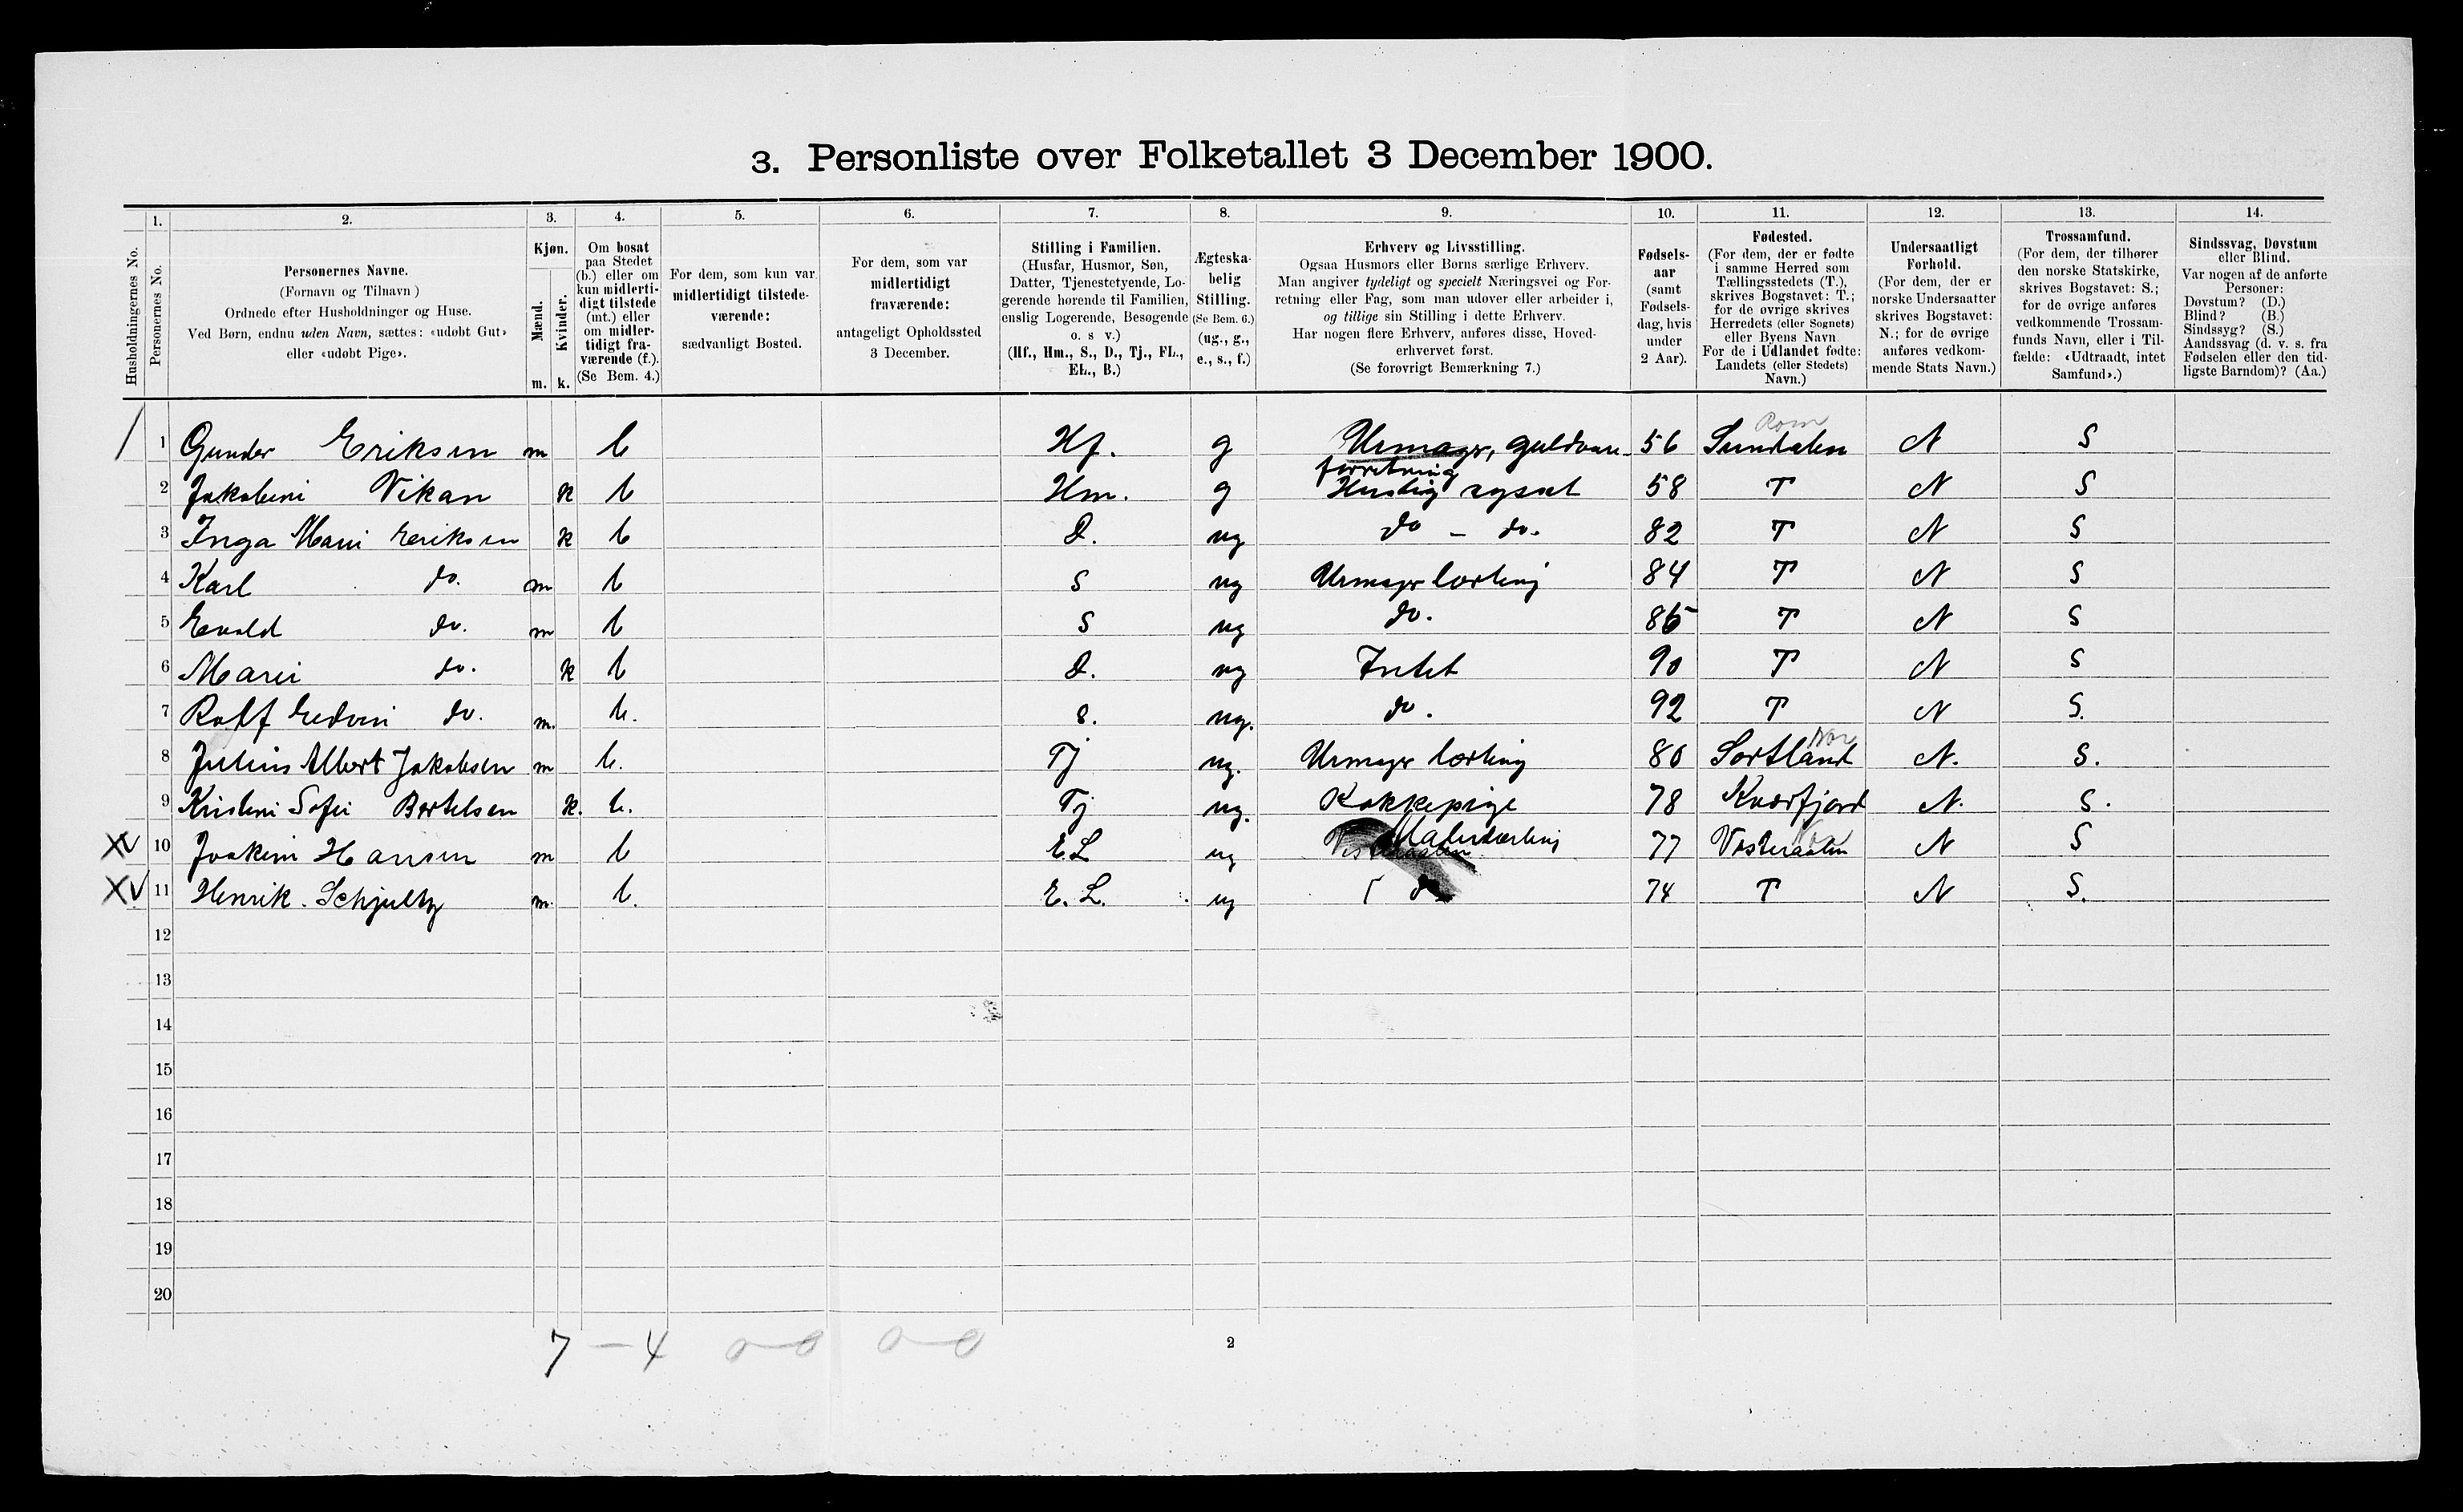 3. Personliste over Folketallet 3 December 1900.
1. 2. 3. 4. 5. 6. 7. 8. 9. 10. 11. 12. 13. 14.
Husholdningernes No.
Personernes No.
Personernes Navne.
(Fornavn og Tilnavn)
Ordnede efter Husholdninger og Huse.
Ved Børn, endnu uden Navn, sættes: «udøbt Gut»
eller «udøbt Pige».
Kjøn.
Mænd.
Kvinder.
m. k.
Om bosat
paa Stedet
(b.) eller om
kun midlerti-
digt tilstede
(mt.) eller
om midler-
tidigt fra-
værende (f.).
(Se Bem. 4.)
For dem, som kun var
midlertidigt tilstede-
værende:
sædvanligt Bosted.
For dem, som var
midlertidigt
fraværende:
antageligt Opholdssted
3 December.
Stilling i Familien.
(Husfar, Husmor, Søn,
Datter, Tjenestetyende, Lo-
gerende hørende til Familien,
enslig Logerende, Besøgende
o. s v.)
(Hf., Hm., S., D., Tj., FL.,
EL., B.)
Ægteska-
belig
Stilling.
(Se Bem. 6.)
(ug., g.,
e., s., f.)
Erhverv og Livsstilling.
Ogsaa Husmors eller Børns særlige Erhverv.
Man angiver tydeligt og specielt Næringsvei og For-
retning eller Fag, som man udøver eller arbeider i,
og tillige sin Stilling i dette Erhverv.
Har nogen flere Erhverv, anføres disse, Hoved-
erhvervet først.
(Se forøvrigt Bemærkning 7.)
Fødsels-
aar
(samt
Fødsels-
dag, hvis
under
2 Aar).
Fødested.
(For dem, der er fødte
i samme Herred som
Tællingsstedets (T.),
skrives Bogstavet: T.;
for de øvrige skrives
Herredets (eller Sognets)
eller Byens Navn
For de i Udlandet fødte:
Landets (eller Stedets)
Navn.)
Undersaatligt
Forhold.
(For dem, der er
norske Undersaatter
skrives Bogstavet:
N.; for de øvrige
anføres vedkom-
mende Stats Navn.)
Trossamfund.
(For dem, der tilhører
den norske Statskirke,
skrives Bogstavet: S.;
for de øvrige anføres
vedkommende Trossam-
funds Navn, eller i Til-
fælde: «Udtraadt, intet
Samfund».)
Sindssvag, Døvstum
eller Blind.
Var nogen af de anførte
Personer:
Døvstum? (D.)
Blind? (B.)
Sindssyg? (S.)
Aandssvag (d. v. s. fra
Fødselen eller den tid-
ligste Barndom)? (Aa.)
Rom
1 Gunder Eriksen m b Hf. g Urmager, guldvare- 56 Sundalen N S
forretning
2 Jakobine Vikan k b Hm. g Huslig syssel 58 T N S
3 Inga Marie Eriksen k b D. ug do - do. 82 T N S
4 Karl do. m b S ug Urmager lærling 84 T N S
5 Evald do. m b S ug do. 86 T N S
6 Marie do. k b D. ug Intet 90 T N S
7 Rolf Edvin do. m. b. S. ug. do. 92 T N S.
Nor
8 Julius Albert Jakobsen m b. Tj ug. Urmager lærling 80 Sortland N. S.
9 Kristine Sofie Bertelsen k. b. Tj ug. Kokkepige 78 Kværfjord N. S.
10 Joakim Hansen m b EL ug Malerlærling 77 Vesteraalen N S
11 Henrik. Schjelby m. b. E. L. ug do 74 T N S.
12
13
14
15
16
17
18
19
20
7 - 4 0-0 0-0
2